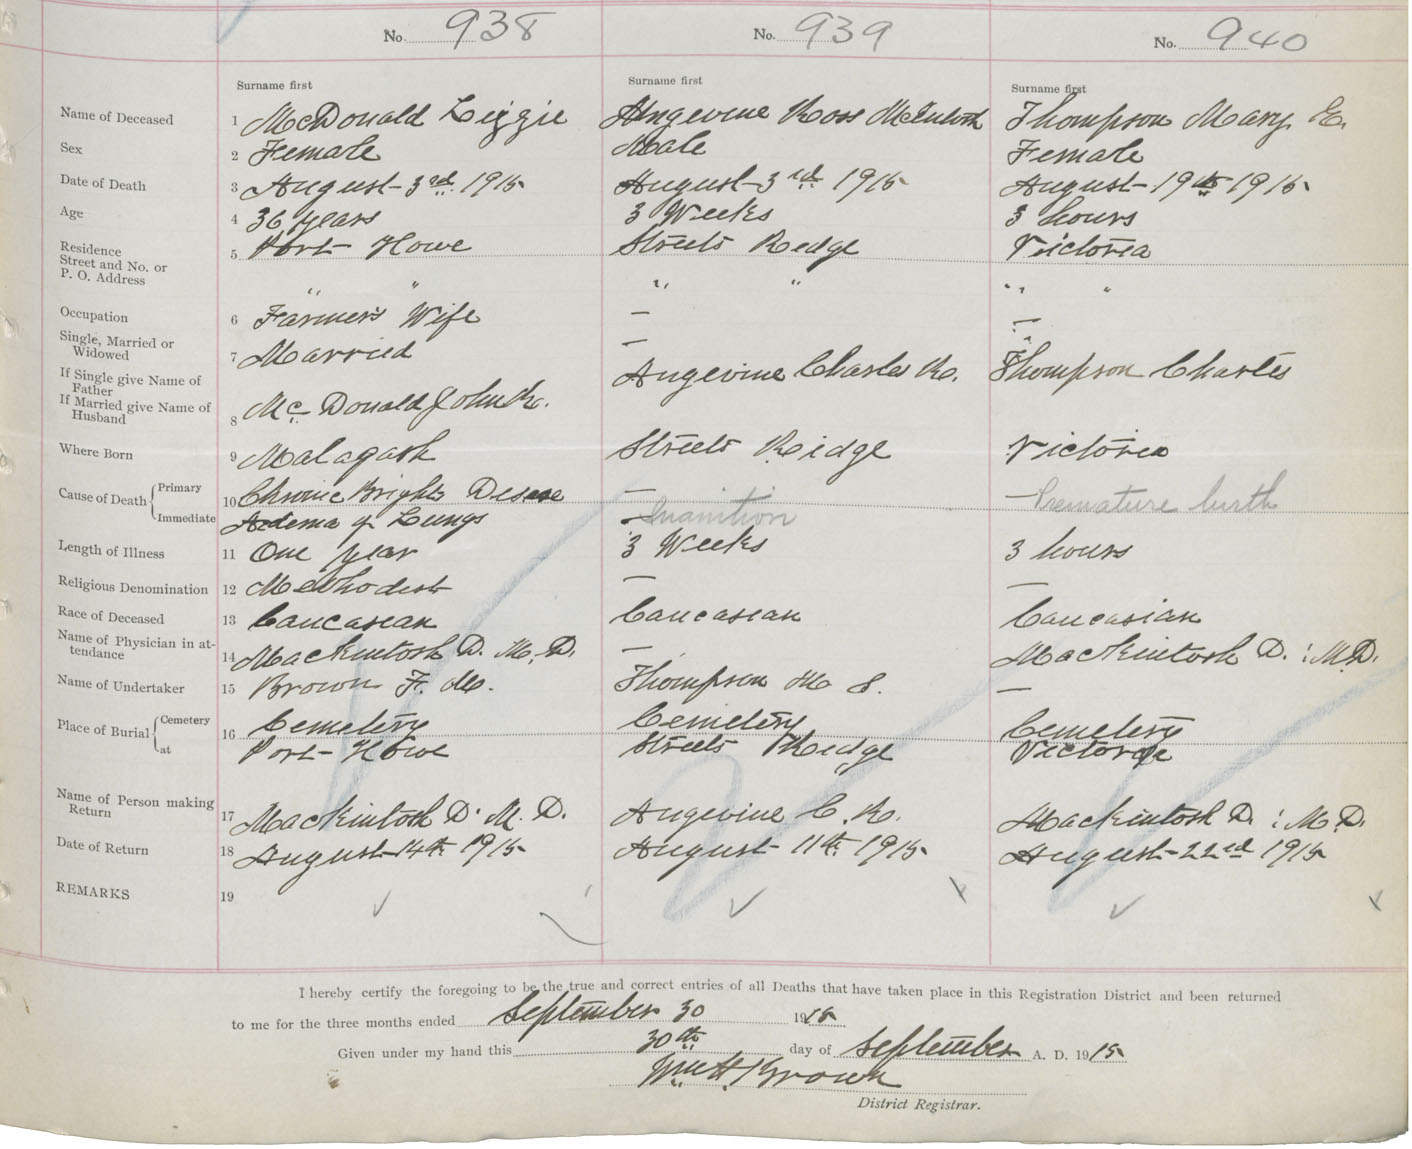 No. 938 No. 939 No. 940
Surname first Surname first Surname first
Name of Deceased 1 McDonald Lizzie Angevine Ross McIntosh Thompson Mary E.
Sex 2 Female Male Female
Date of Death 3 August 3rd 1915 August 3rd 1915 August 19th 1915
Age 4 36 years 3 Weeks 3 hours
Residence Street and No. or P. O. Address 5 Port Howe Streets Ridge Victoria
" " " " " "
Occupation 6 Farmers Wife — —
Single, Married or Widowed 7 Married —
If Single give Name of Father Angevine Charles R. Thompson Charles
If Married give Name of Husband 8 Mc Donald John R.
Where Born 9 Malagash Streets Ridge Victoria
Cause of Death Primary 10 Chronic Brights Desese — — Premature birth
Immediate Aedema of Lungs Inanition
Length of Illness 11 One year 3 Weeks 3 hours
Religious Denomination 12 Methodist — —
Race of Deceased 13 Caucasean Caucasean Caucasian
Name of Physician in attendance 14 Mackintosh D. M. D. — Mackintosh D. : M.D.
Name of Undertaker 15 Brown F. M. Thompson M S. —
Place of Burial Cemetery 16 Cemetery Cemetery Cemetery
at Port Howe Streets Ridge Victoria
Name of Person making Return 17 Mackintosh D. M. D. Angevine C. R. Mackintosh D. : M.D.
Date of Return 18 August 14th 1915 August 11th 1915 August 22ed 1915
REMARKS 19
I hereby certify the foregoing to be the true and correct entries of all Deaths that have taken place in this Registration District and been returned
to me for the three months ended September 30 1915
Given under my hand this 30th day of September A. D. 1915
Wm H Brown
District Registrar.